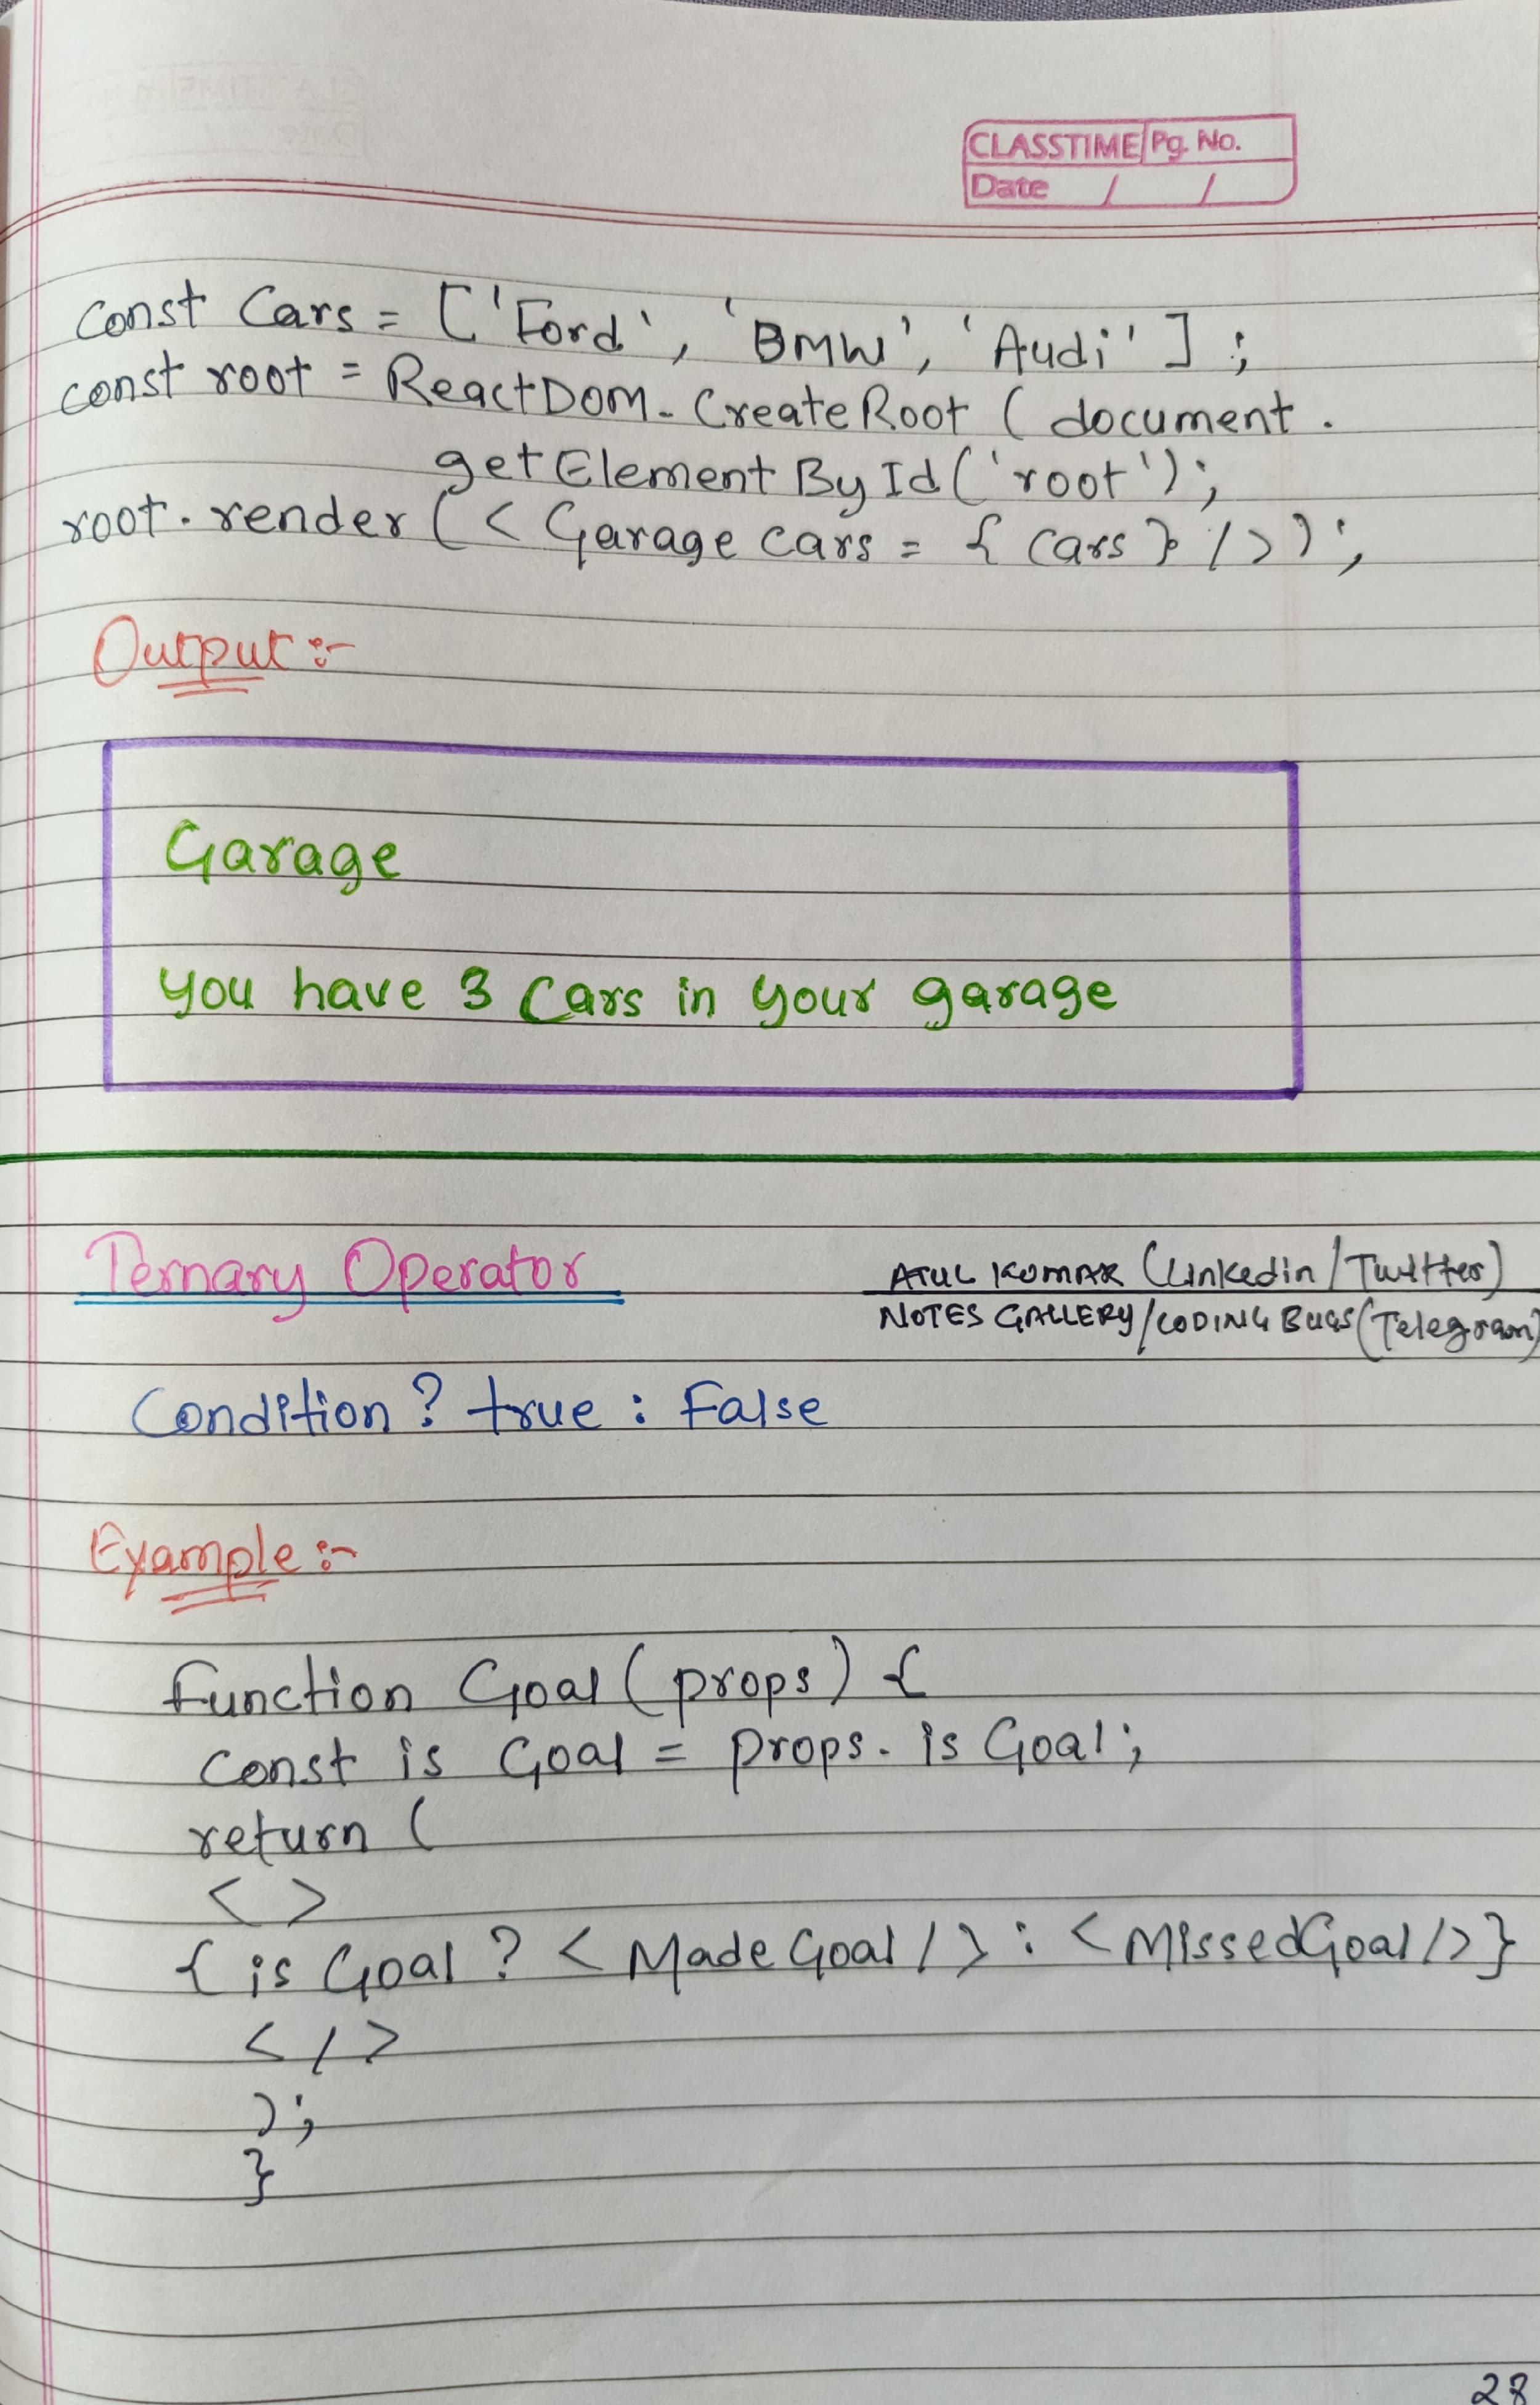 CLASSTIME Pg. No.
Date / /
const Cars = ['Ford', 'BMW', 'Audi'];
const root = ReactDOM.CreateRoot (document.
getElementById('root');
root.render(<Garage cars = {cars} />);
Output:-
Garage
you have 3 Cars in your garage
Ternary Operator
ATUL KUMAR (Linkedin/Twitter)
NOTES GALLERY/CODING BUGS(Telegram)
Condition ? true : False
Example:-
function Goal (props) {
const is Goal = props.is Goal;
return (
<>
{is Goal ? <MadeGoal/> : <MissedGoal/>}
</>
);
}